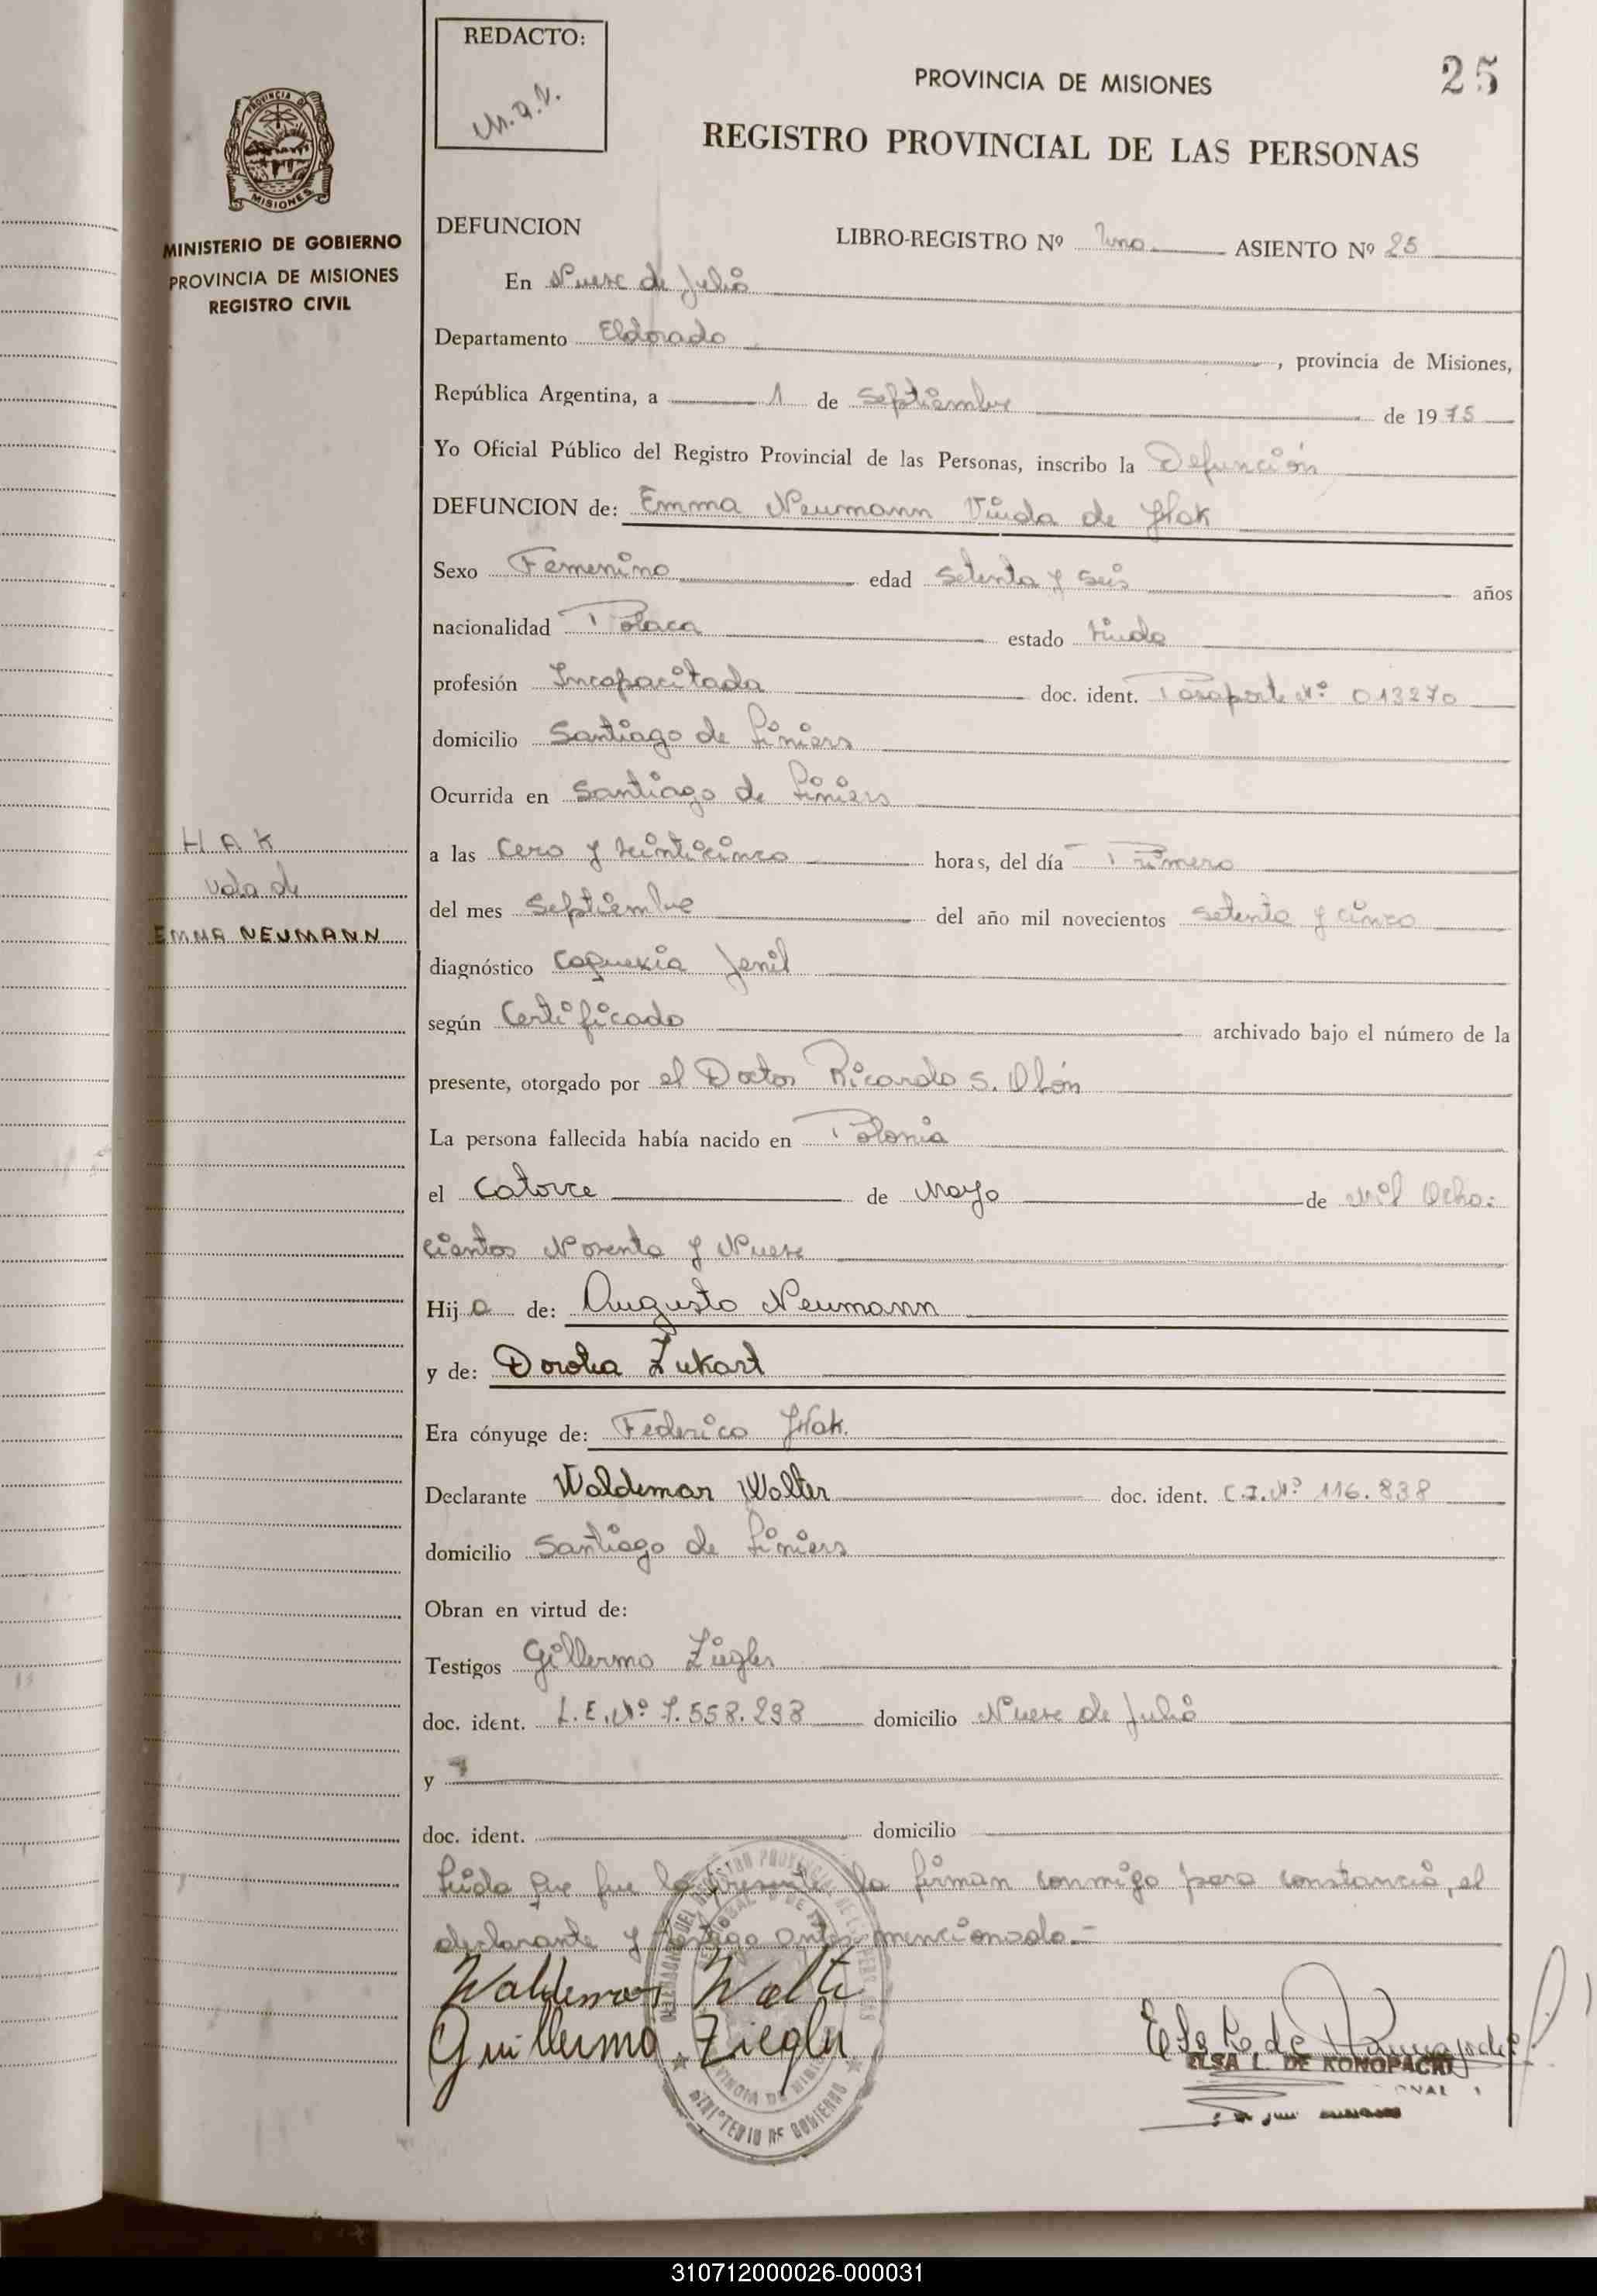 REDACTO:
PROVINCIA DE MISIONES
25
REGISTRO PROVINCIAL DE LAS PERSONAS
PROVINCIA DE
MISIONES
MINISTERIO DE GOBIERNO
PROVINCIA DE MISIONES
REGISTRO CIVIL
DEFUNCION
LIBRO-REGISTRO Nº Uno ASIENTO Nº 25
En Nueve de Julio
Departamento Eldorado, provincia de Misiones,
República Argentina, a 1 de Septiembre de 1975
Yo Oficial Público del Registro Provincial de las Personas, inscribo la Defunción
DEFUNCION de: Emma Neumann Viuda de Hak
Sexo Femenino edad Setenta y Seis años
nacionalidad Polaca estado Viuda
profesión Incapacitada doc. ident. Pasaporte Nº 013270
domicilio Santiago de Liniers
Ocurrida en Santiago de Liniers
HAK
Vda de
EMMA NEUMANN
a las Cero y Veinticinco horas, del día Primero
del mes Septiembre del año mil novecientos Setenta y Cinco
diagnóstico Caquexia Senil
según Certificado archivado bajo el número de la
presente, otorgado por el Doctor Ricardo S.
La persona fallecida había nacido en Polonia
el Catorce de Mayo de Mil Ocho:
cientos Noventa y Nueve
Hija de: Augusto Neumann
y de: Dorotea Zukart
Era cónyuge de: Federico Hak.
Declarante Waldemar Walter doc. ident. C.I. Nº 116.838
domicilio Santiago de Liniers
Obran en virtud de:
Testigos Gillermo Ziegler
doc. ident. L.E. Nº 7.558.298 domicilio Nueve de Julio
y
doc. ident. domicilio
Leida que fue la presente la firman conmigo para constancia, el
declarante y testigo antes mencionado.-
Waldemar Walter
Guillermo Ziegler
ELSA L. DE KONOPACKI
MINISTERIO DE GOBIERNO
310712000026-000031